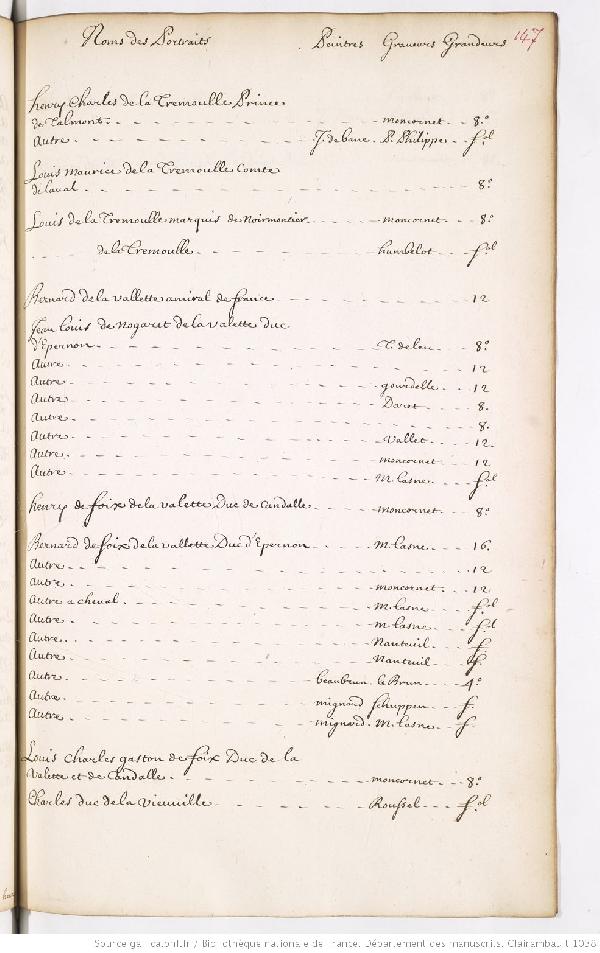 Noms des Portraits Peintres Graveurs Grandeurs 147
henry Charles de la Tremouille Prince
de Talmont moncornet 8.º
Autre J. de bane P. Philippe fol
Louis maurice de la Tremouille Comte
de laval 8.º
Louis de la Tremouille marquis de Noirmontier moncornet 8.º
de la Tremouille humbelot fol
Bernard de la vallette amiral de france 12
Jean louis de Nogaret de la valette duc
d'Epernon T. de leu 8.º
Autre 12
Autre gourdelle 12
Autre Daret 8.
Autre 8.
Autre Vallet 12
Autre moncornet 12
Autre M. lasne fol
henry de foix de la valette Duc de Candalle moncornet 8.º
Bernard de foix de la vallette Duc d'Epernon M. lasne 16.
Autre 12
Autre moncornet 12
Autre a cheval M. lasne fol
Autre M. lasne fol
Autre Nanteuil f.
Autre Nanteuil f.
Autre beaubrun le Brun 4.º
Autre mignard Schuppen f.
Autre mignard M. lasne f.
Louis Charles gaston de foix Duc de la
Valette et de Candalle moncornet 8.º
Charles duc de la vieuville Roussel fol
Source gallica.bnf.fr / Bibliothèque nationale de France. Département des manuscrits. Clairambault 1038